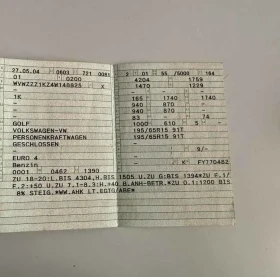 27.05.04 0603 721
01 0200
X
-
1K
-
-
GOLF
VOLKSWAGEN-VW
PERSONENKRAFTWAGEN
GESCHLOSSEN
-
EURO 4
Benzin
0001 0462 1390
2 01 55 /5000 184
4204 1759
1470 1229
-
165 1740 1740
940 870 -
940 870 -
83 - 74
1000 610 5 -
195/65R15 91T
195/65R15 91T
-
- 9/-
- K FY770482
ZU 18-20:L.BIS 4304,H.BIS 1505 U.ZU G:BIS 1394*ZU F.1/
F.2:+50 U.ZU 7.1-8.3:H.+40 B.ANH-BETR.*ZU O.1:1200 BIS
8% STEIG.*WW.AHK LT.EGTG/ABE*